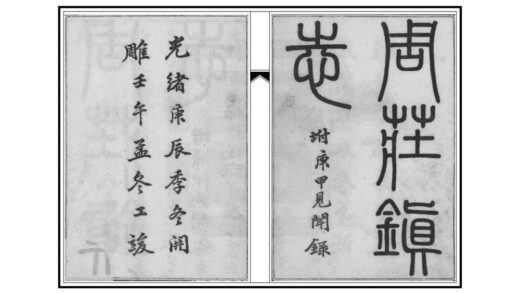 周莊鎮
志
坿庚申見聞錄
光緒庚辰季冬開
雕壬午孟冬工竣